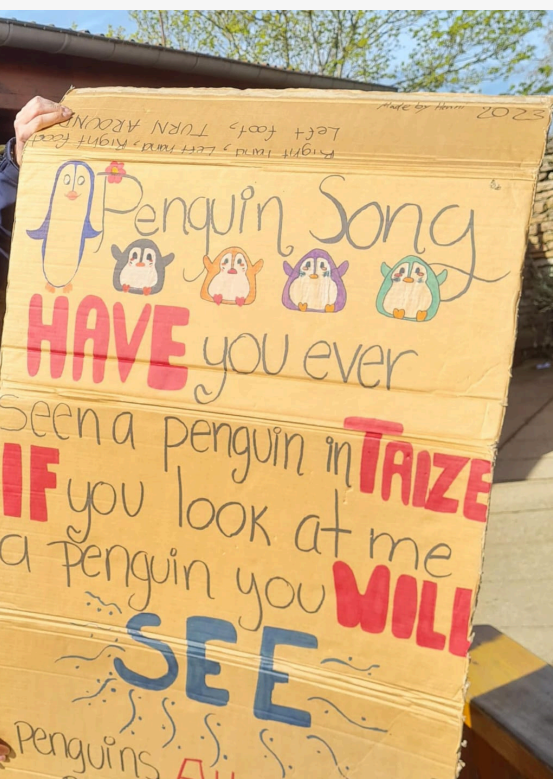 Made by 2023
Right hand, Left hand, Right foot,
Left foot, TURN AROUND
Penguin Song
HAVE you ever
seen a penguin in TAIZE
IF you look at me
a penguin you WILL
SEE
penguins